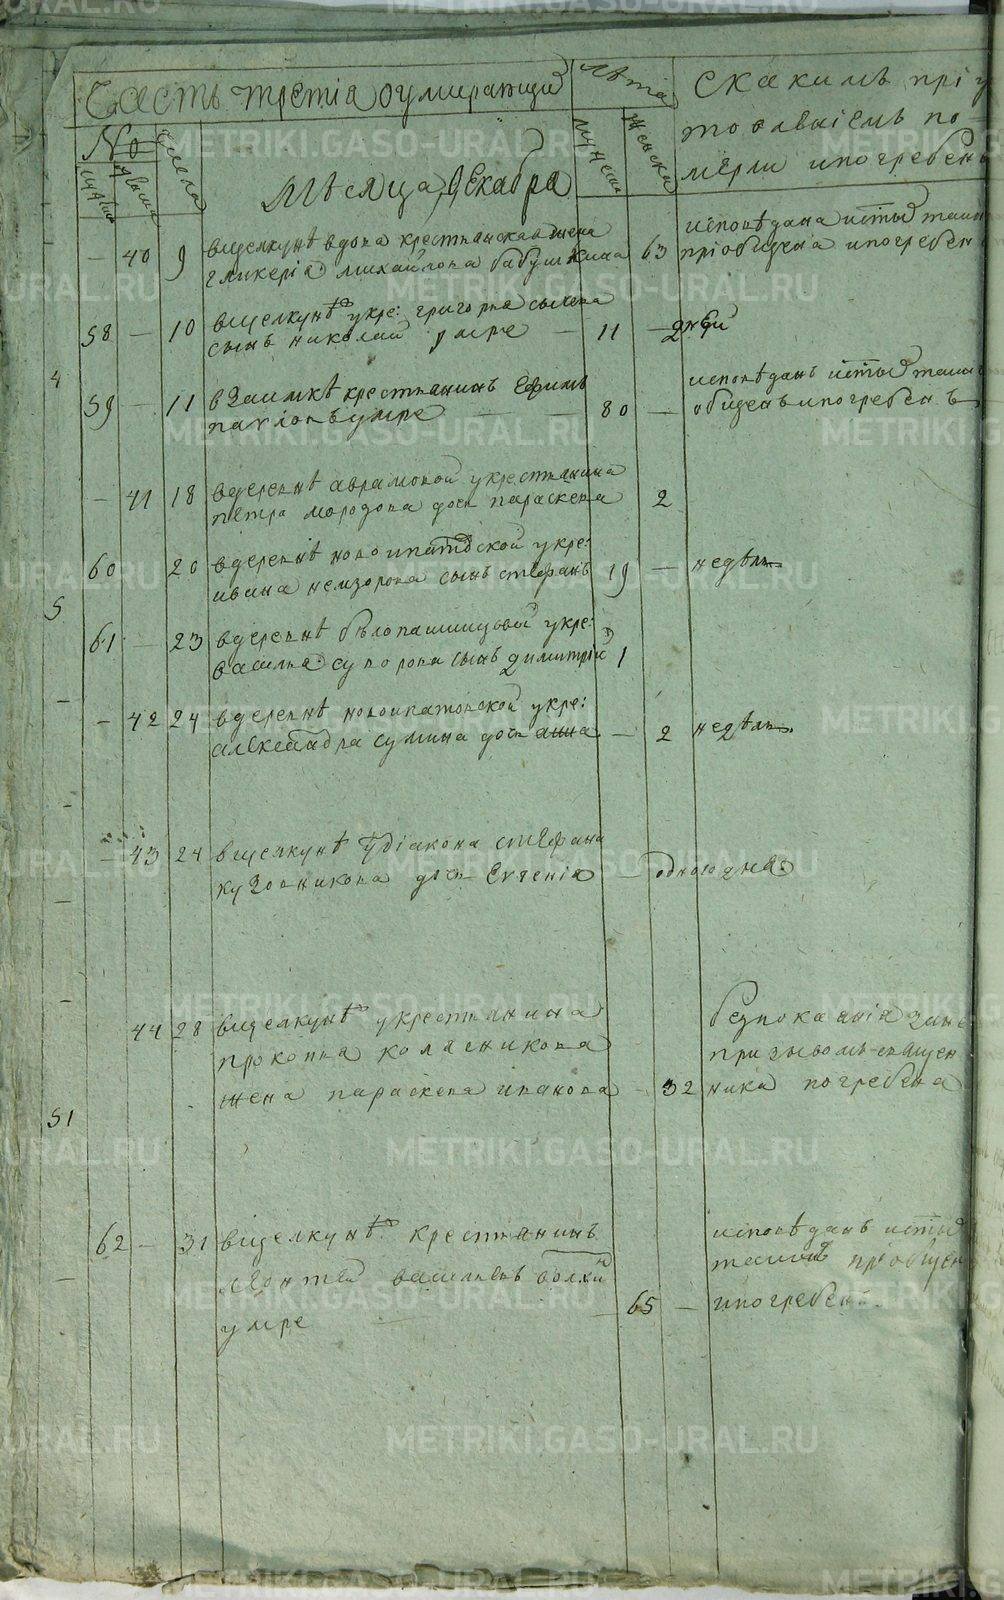 Часть третiя о умирающи
лѣта
с какимъ прiу
No
мужеска
женска
числа
мужеска
женска
тоавлѣнiемъ по-
мерли и погребен
мѣсяца декабра
- 40 9 в щелкунѣ вдова крестьянская жена
гликерiа михайлова бабушкина 63
исповѣдана истыхъ таин
прiобщена и погребен
58 - 10 в щелкунѣ у кре: григорья сычева
сынъ николай умре - 11 - дней
59 - 11 в Заимкѣ крестьянинъ Ефимъ
павловъ умре 80 -
исповѣданъ истыхъ таин
общенъ и погребенъ
4
- 41 18 в деревнѣ аврамовой у крестьянина
петра мородова дочь параскева 2
60 20 в деревнѣ новоипатовской у кре:
ивана немзорова сынъ стефанъ 19 - недѣль
5
61 - 23 в деревнѣ бѣлопашинцовой у кре:
василья суворова сынъ димитрiй 1
- 42 24 в деревнѣ новоипатовской у кре:
александра сумина дочь анна - 2 недѣль
- 43 24 в щелкунѣ у дiакона стефана
кузовникова дочь Евгенiа - одного дна:
44 28 в щелкунѣ у крестьянина
прокопьа коласникова
жена параскева иванова - 32
без покаанiа за не
призывомъ священ
ника погребена
51
62 - 31 в щелкунѣ крестьянинъ
леонтей васильевъ волки
умре 65 -
исповѣданъ исты
таинъ прiобщен
и погребенъ
METRIKI.GASO-URAL.RU